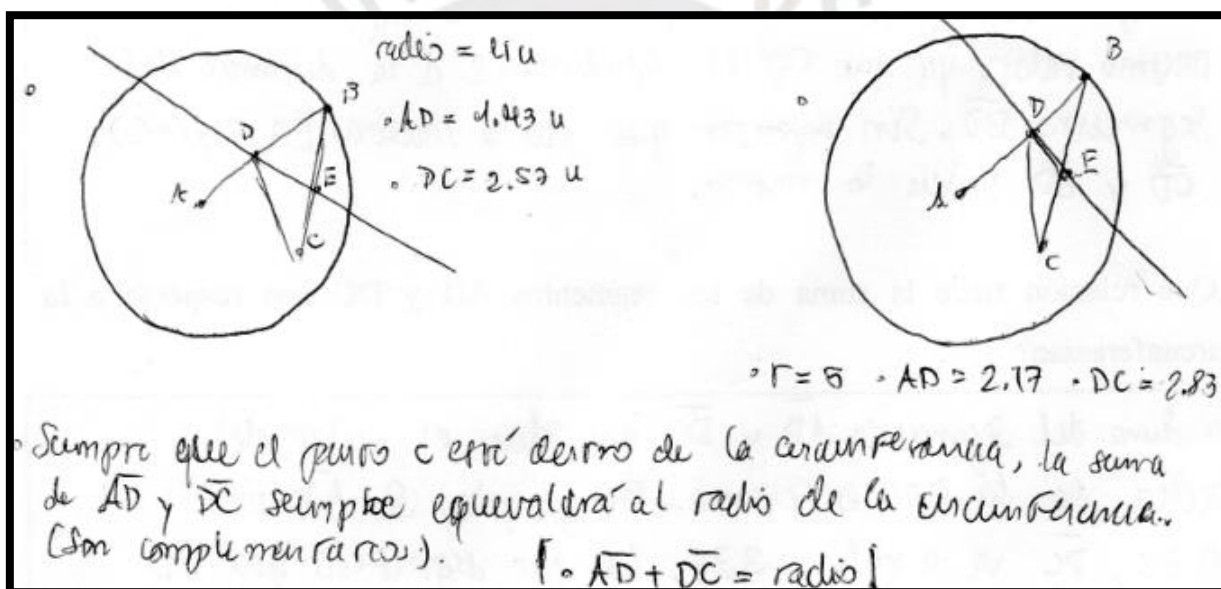 radio = 4u
• AD = 1.43 u
• DC = 2.57 u
B
D
E
A
C
B
D
E
A
C
• r = 5 • AD = 2.17 • DC = 2.83
• Siempre que el punto C esté dentro de la circunferencia, la suma
de AD y DC siempre equivaldrá al radio de la circunferencia.
(Son complementarios).
• AD + DC = radio